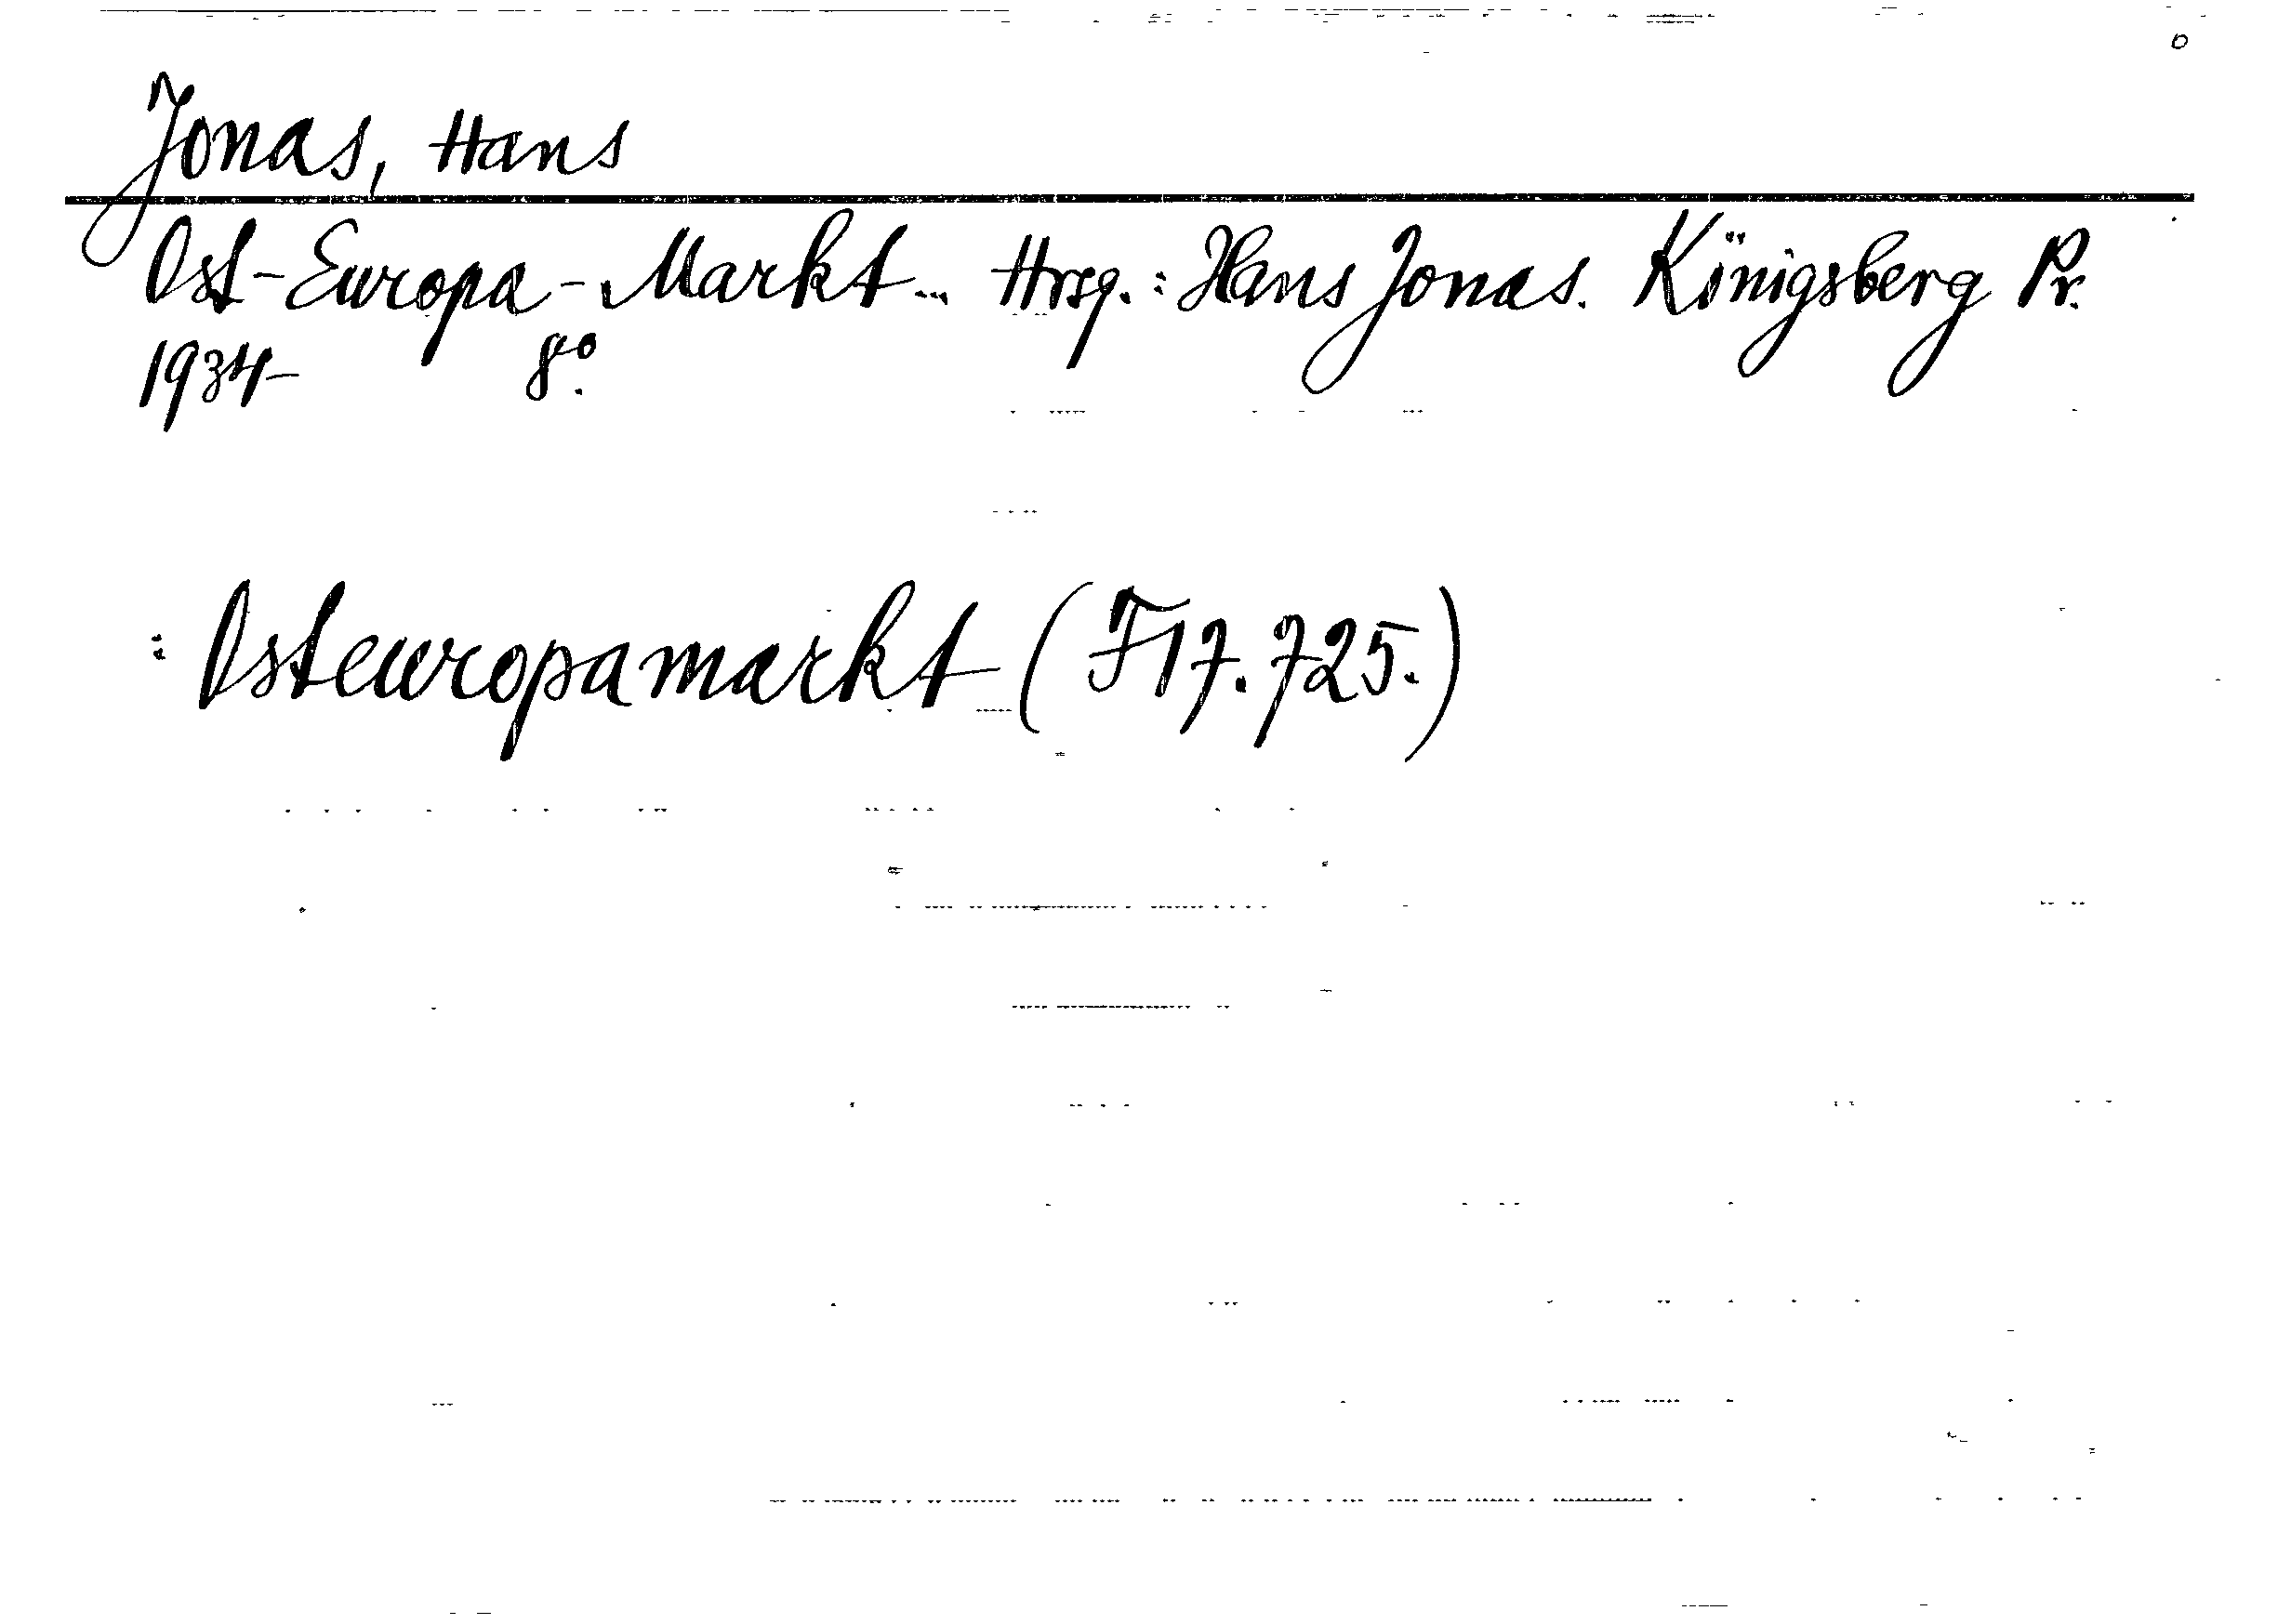 Jonas, Hans
Ost-Europa-Markt... Hrsg.: Hans Jonas. Königsberg Pr.
1934- 8°.
: Osteuropamarkt (F17.725.)